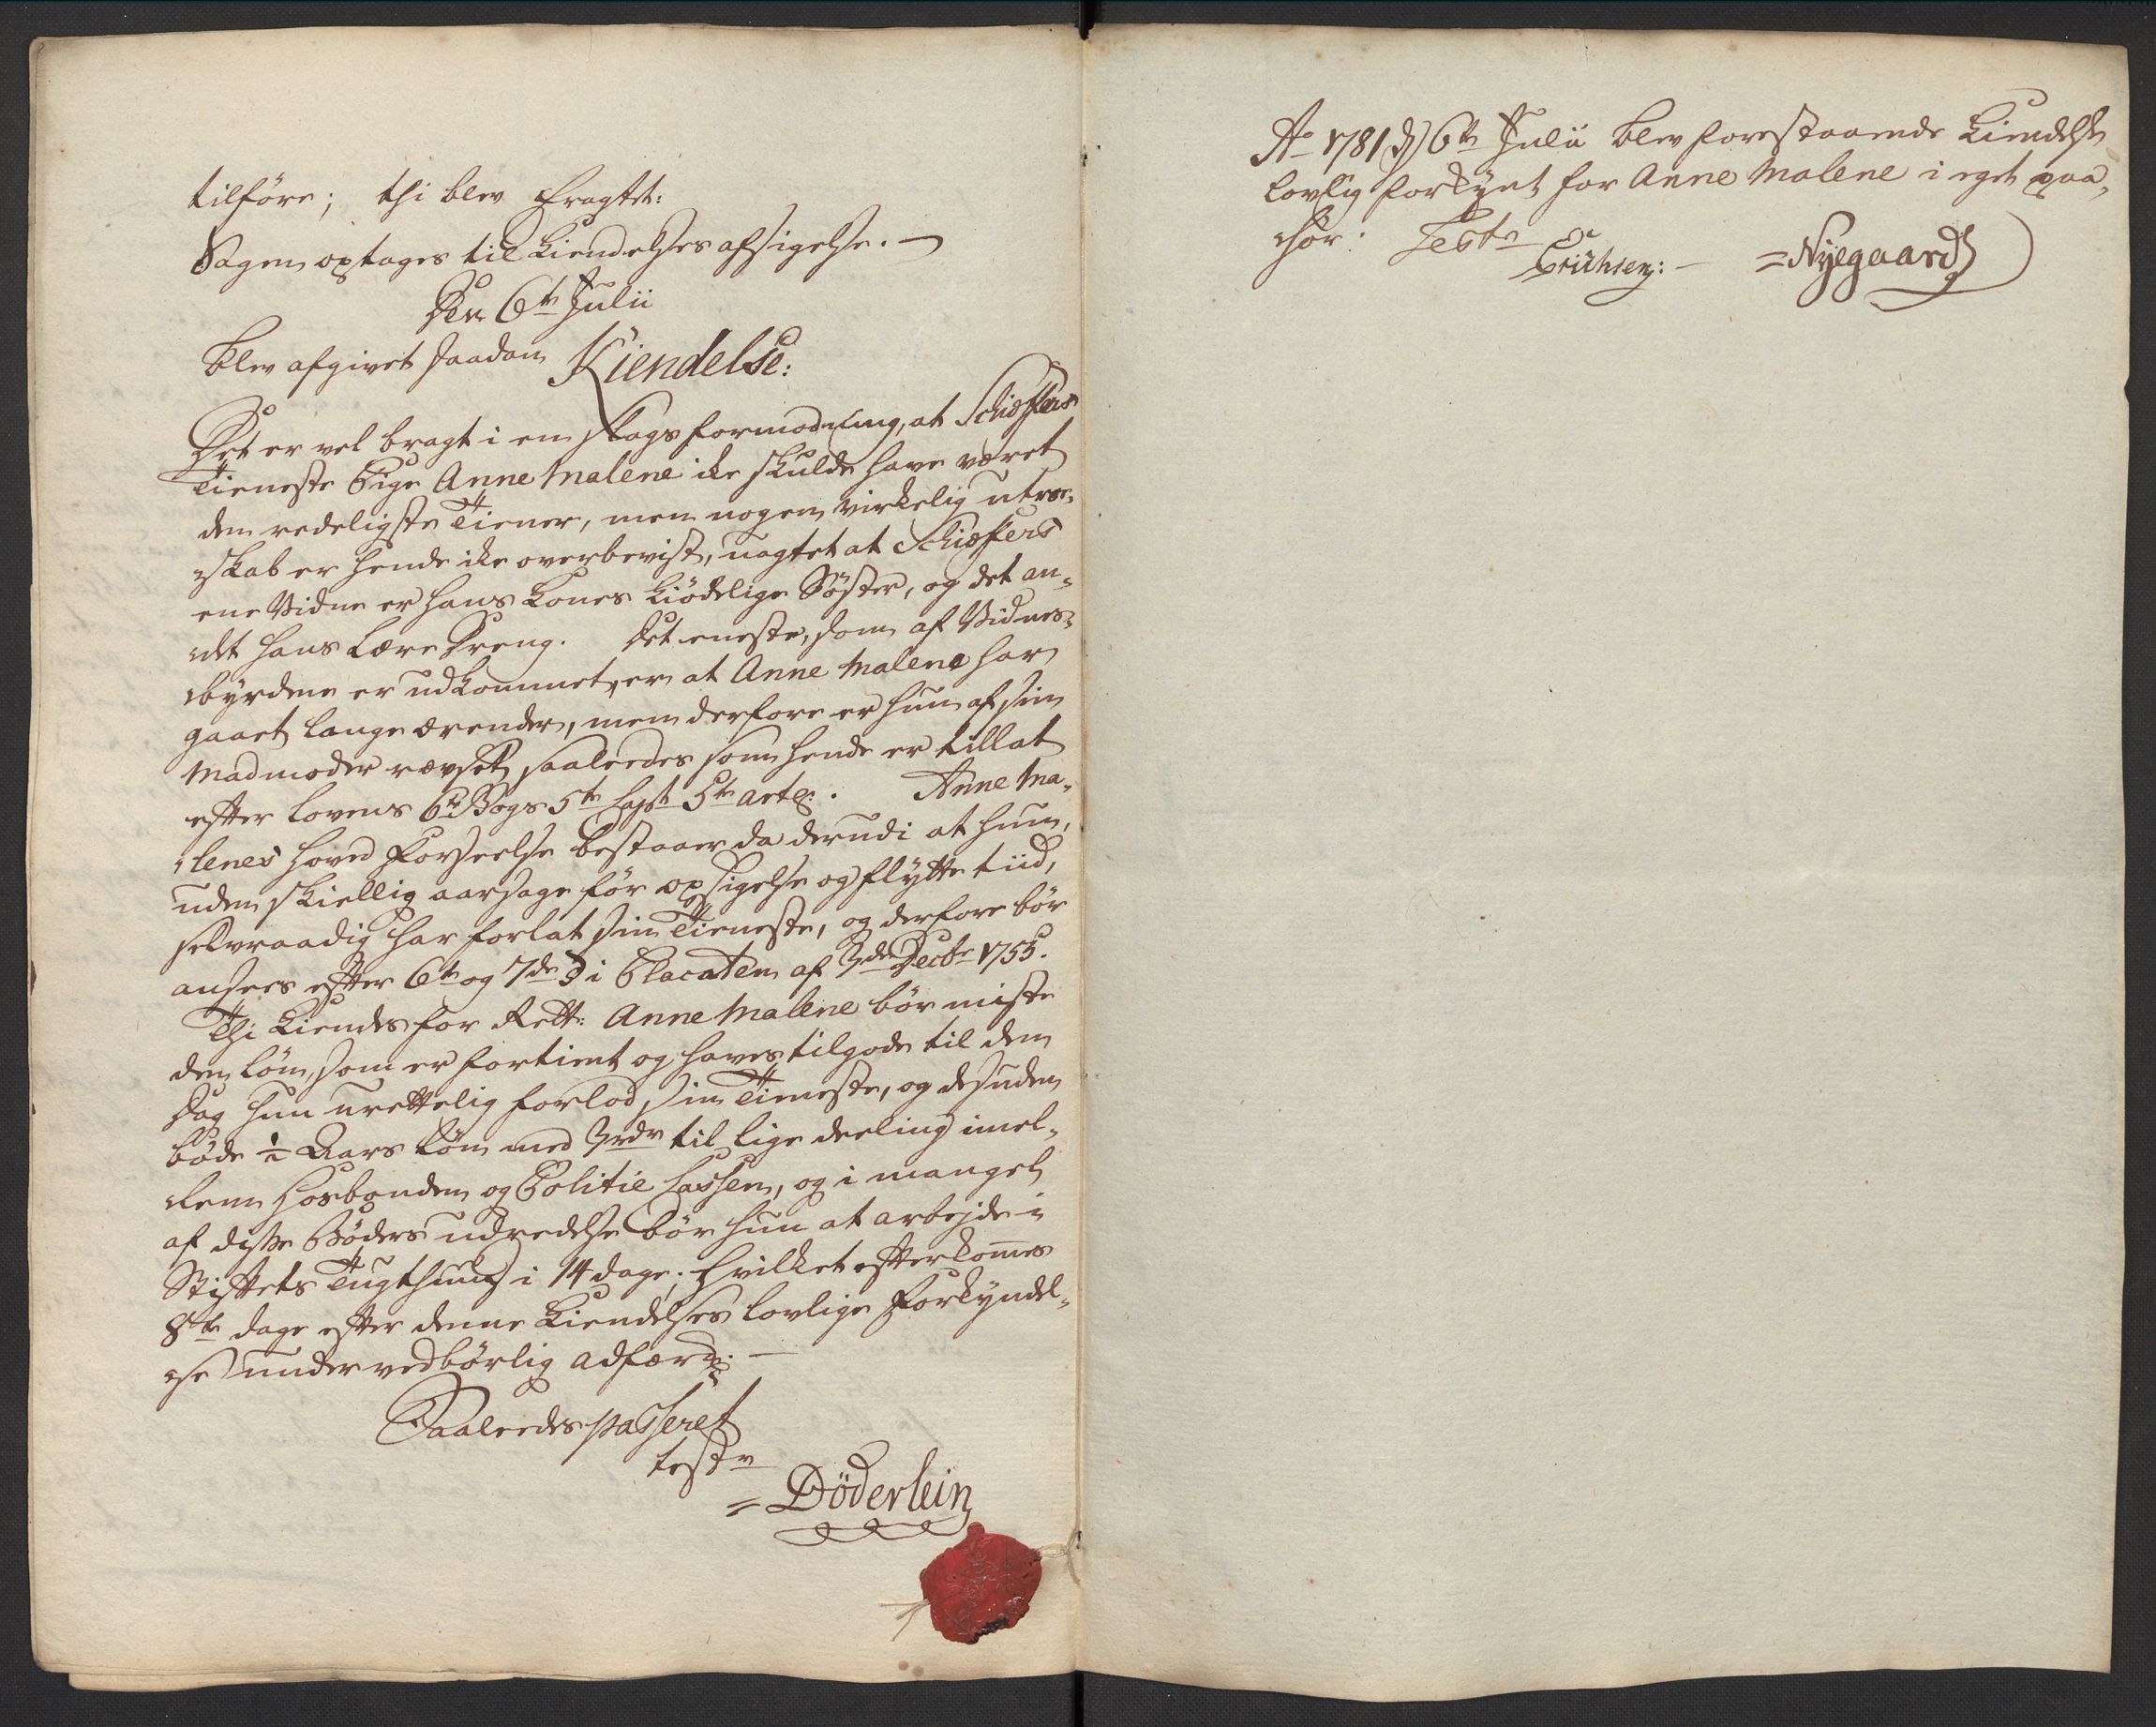 tilföre; thi blev Eragtet:
Sagen optages til Kiendelses afsigelse. —
Den 6te Julii
blev afgivet saadan Kiendelse:
Det er vel bragt i en slags formodning, at Schieffers
Tieneste Pige Anne Malene ike skulde have været
den redeligste Tiener, men nogen virkelig utroe-
skab er hende ike overbevist, uagtet at Schieffers
ene Vidne er hans Kones Kiödelige Söster, og det an-
det hans Lære Dreng. Det eneste, som af Vidnes-
byrdene er udkommet, er at Anne Malene har
gaaet lange ærender, men derfore er hun af sin
Madmoder revset, saaledes som hende er tillat
efter Lovens 6te Bogs 5te Capt: 5te artl: . Anne Ma-
lenes hoved Forseelse bestaaer da derudi at hun,
uden skiellig aarsage för opsigelse og flytte tiid,
selvraadig har forlat sin Tieneste, og derfore bör
ansees efter 6te og 7de § i Placaten af 3de Decbr 1755.
Thi Kiendes for Rett: Anne Malene bör miste
den Lön, som er fortient og haves tilgode til den
Dag hun urettelig forlod sin Tieneste, og desuden
böde ½ Aars Lön med 3rdr til lige deeling imel-
lem Hosbonden og Politie Cassen, og i mangel
af disse Böders udredelse bör hun at arbejde i
Stiftets Tugthuus i 14 dage; Hvilket efterkom̅es
8te dage efter denne Kiendelses lovlige Forkyndel-
se under vedbörlig adfærd. —
Saaledes passeret
test
= Döderlein
Ao 1781 d 6te Julii blev forestaaende Kiendelse
lovlig forkynt for Anne Malene i eget paa-
hör: Test
Erichsen: — = Nyegaard